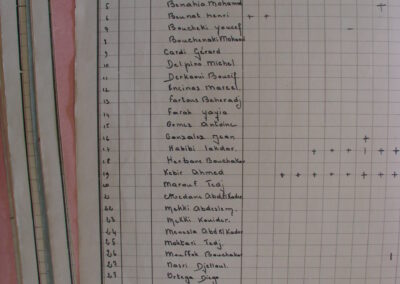 5 Benahia Mohamed
6 Beunat henri + +
8 Boucheki youcef -
9 Bouchenaki Mohamed
9 Cardi Gérard
10 Delpino Michel
11 Derkaoui Bousif
12 Encinas Marcel
13 Fartous Baheradj
14 Farah yayia
15 Gomez Antoine
16 Gonzalez Jean +
17 Habibi lakdar + + + + | + +
18 Herbane Bouchakor
19 Kebir Ahmed + + + + + + + + +
20 Marouf Tedj
Abdelkader
22 Mekki Abdeslem
23 Mekki Kouider
24 Abdelkader
25 Moktari Tedj
26 Mouffok Bouchakor |
27 Nasri Djelloul
28 Ortega Diego